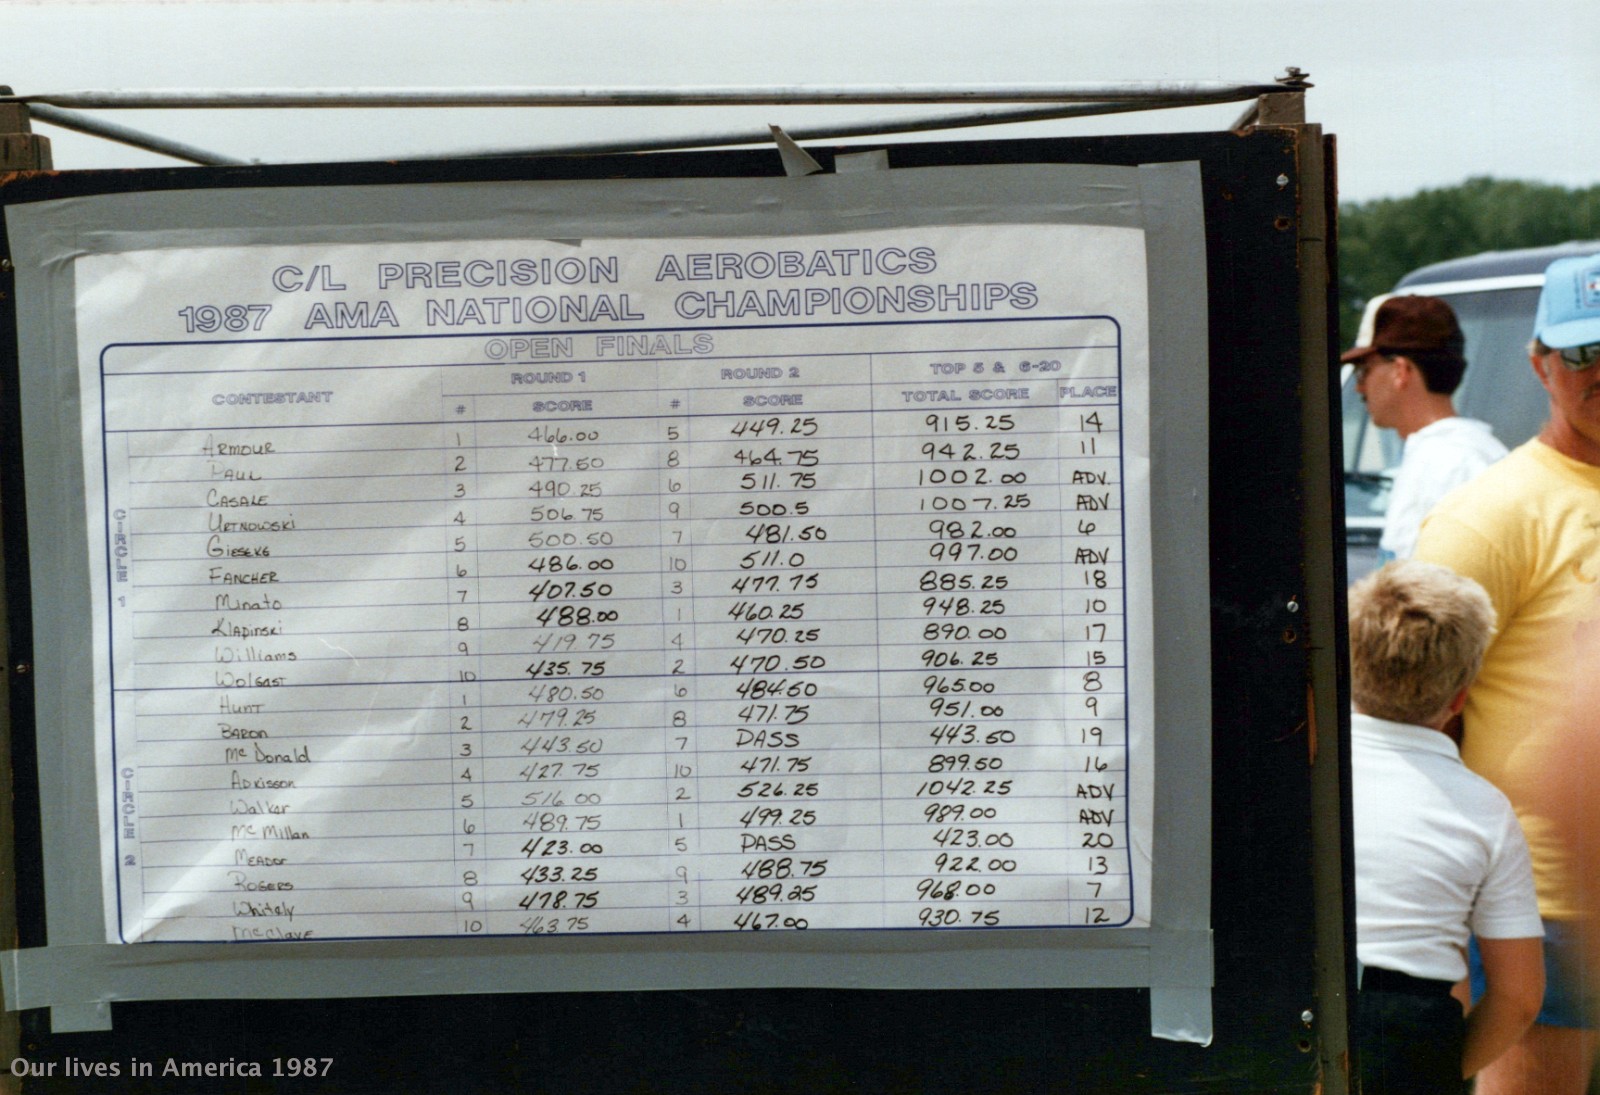 C/L PRECISION AEROBATICS
1987 AMA NATIONAL CHAMPIONSHIPS
OPEN FINALS
CONTESTANT ROUND 1 ROUND 2 TOP 5 & 6-20
# SCORE # SCORE TOTAL SCORE PLACE
CIRCLE 1
ARMOUR 1 466.00 5 449.25 915.25 14
PAUL 2 477.50 8 464.75 942.25 11
CASALE 3 490.25 6 511.75 1002.00 ADV.
URTNOWSKI 4 506.75 9 500.5 1007.25 ADV
GIESEKE 5 500.50 7 481.50 982.00 6
FANCHER 6 486.00 10 511.0 997.00 ADV
Minato 7 407.50 3 477.75 885.25 18
KLAPINSKI 8 488.00 1 460.25 948.25 10
Williams 9 419.75 4 470.25 890.00 17
WOLGAST 10 435.75 2 470.50 906.25 15
CIRCLE 2
HUNT 1 480.50 6 484.50 965.00 8
BARON 2 479.25 8 471.75 951.00 9
McDonald 3 443.50 7 PASS 443.50 19
ADKISSON 4 427.75 10 471.75 899.50 16
Walker 5 516.00 2 526.25 1042.25 ADV
McMillan 6 489.75 1 499.25 989.00 ADV
MEADOR 7 423.00 5 PASS 423.00 20
ROGERS 8 433.25 9 488.75 922.00 13
Whitely 9 478.75 3 489.25 968.00 7
McClave 10 463.75 4 467.00 930.75 12
Our lives in America 1987